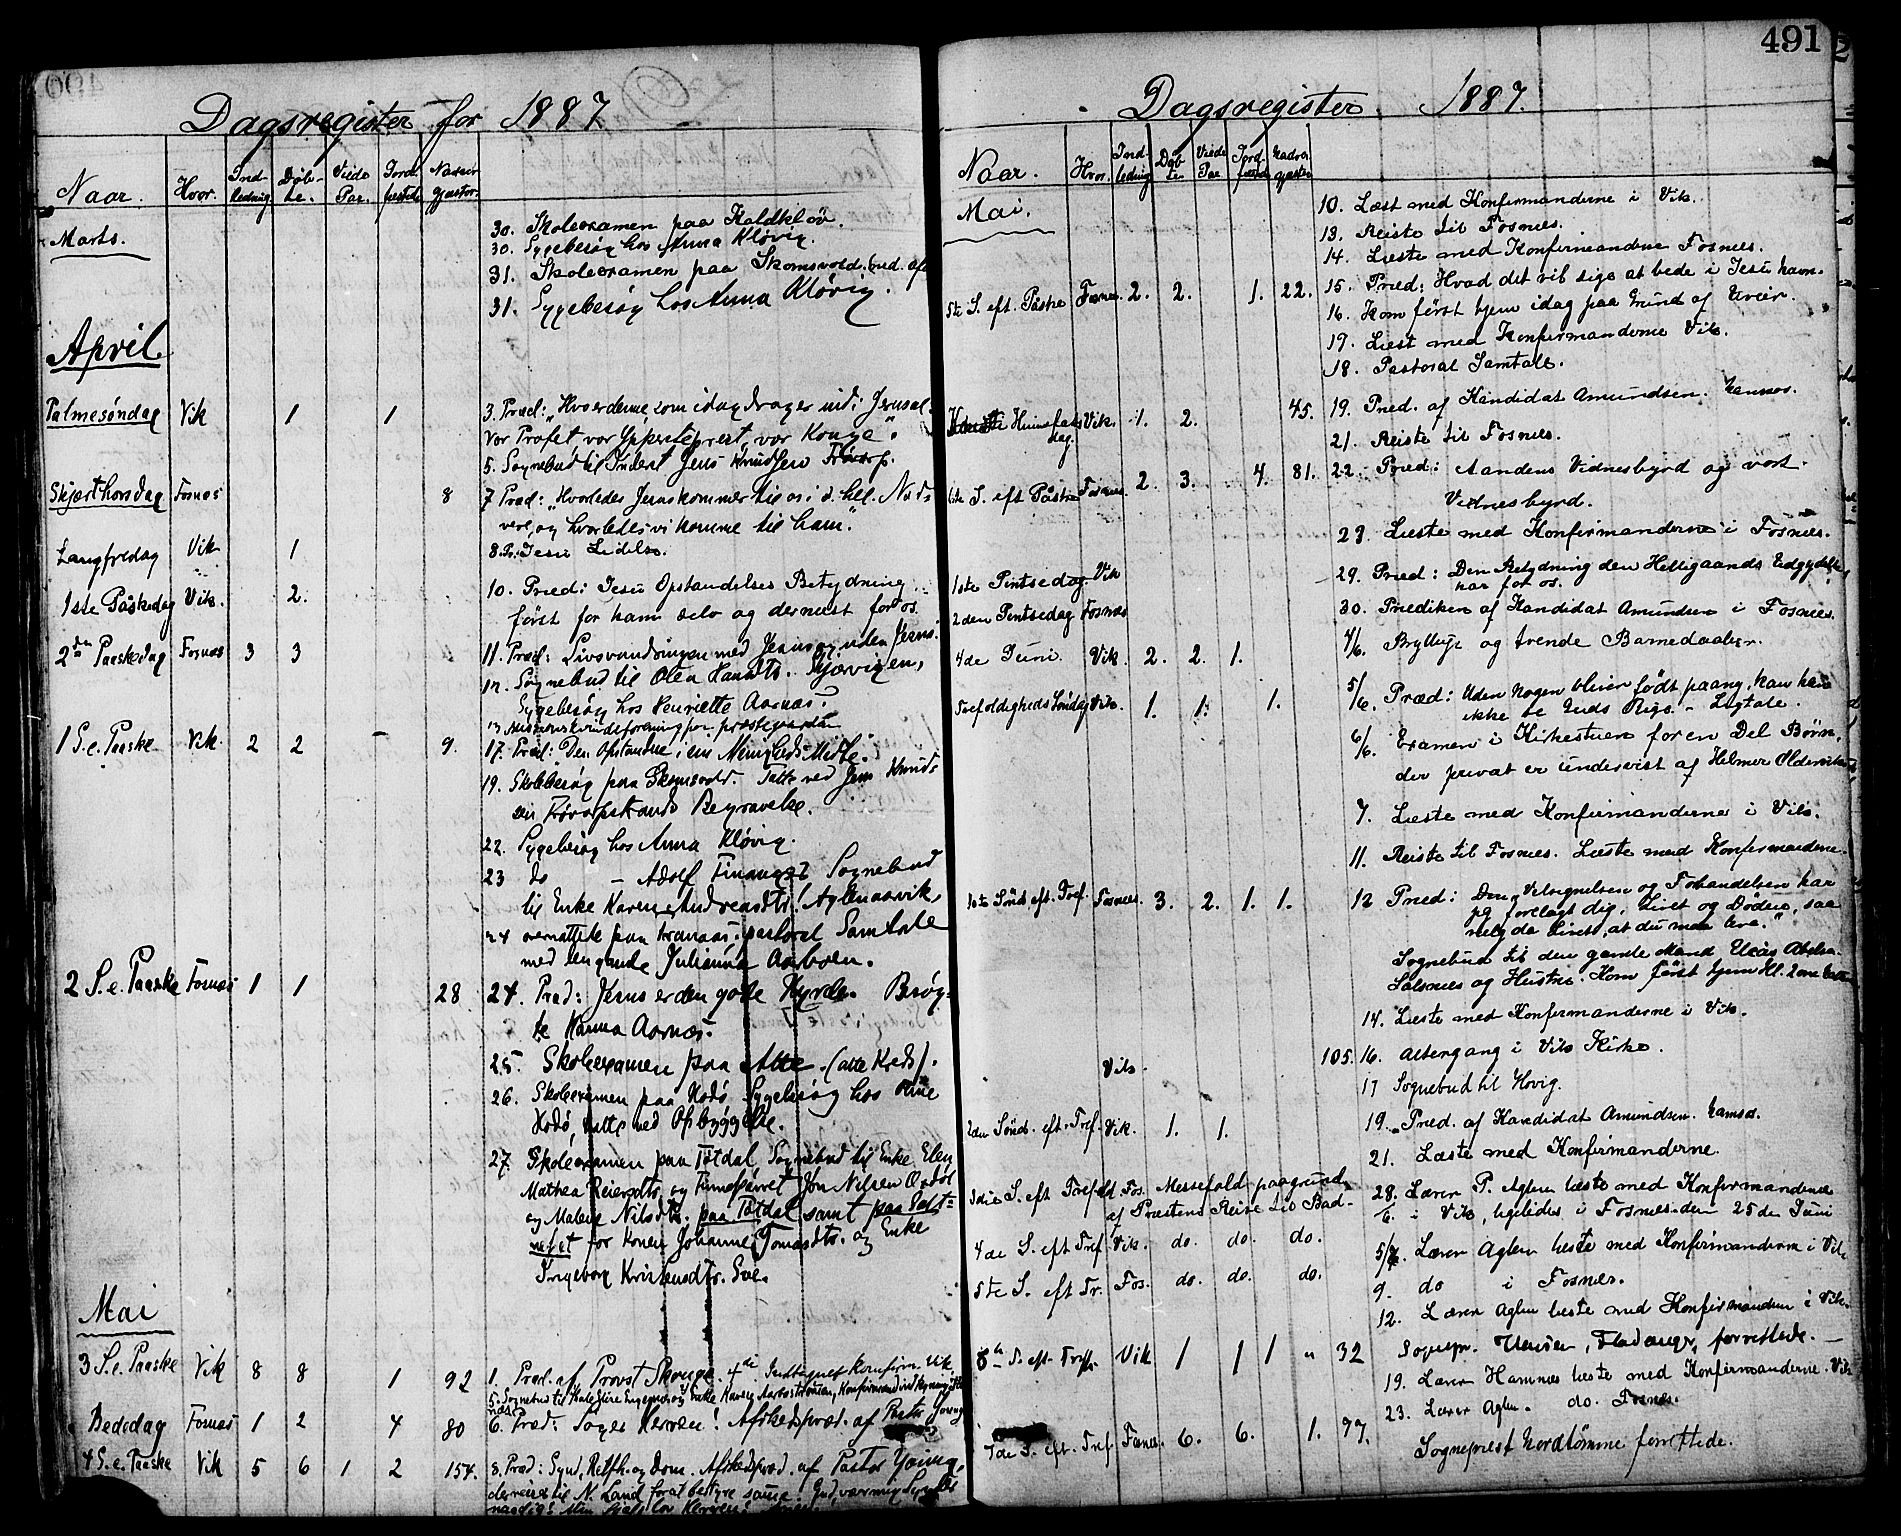 490
Dagsregister for 1887
Naar. Hvor. Ind- ledning Døb- te. Viede Par. Jord- fæstede Nadver gjæster.
Marts.
30. Skoleexamen paa Kaldkløv.
30. Sygebesøg hos Anna Kløvig.
31. Skoleexamen paa Skomsvold.
31. Sygebesøg hos Anna Kløvig.
April
Palmesøndag Vik 1 1 3. Præd: "Hvo er denne som idag drager ind i Jerusal.
Vor Profet vor Ypperstepræst, vor Konge".
5. Sognebud til Inderst Jens Knudsen
Skjærthorsdag Fosnæs 8 7 Præd: "Hvorledes Jesus kommer til os i d. hell. Nad-
vere, og hvorledes vi komme til ham".
Langfredag Vik 1 8. Pr. Jesu Lidelse.
1ste Påskedag Vik. 2. 10. Præd: Jesu Opstandelses Betydning
først for ham selv og dernæst for os.
2den Paaskedag Fosnæs 3 3 11. Præd: Livsvandringen med Jesus og uden Jesus.
12. Sognebud til Olea
Sygebesøg hos Henriette Aarnæs.
13 Missionskvindeforening paa præstegaarden
1 S. e. Paaske Vik 2 2 - 9. 17. Præd: Den Opstandne i sin Menigheds Midte.
19. Skolebesøg paa Skomsvold. Talte ved Jens Knud-
sen Begravelse.
22. Sygebesøg hos Anna Kløvig.
23 do - Adolf Sognebud
til Enke Karen Andreasdtr.
24 overnattede paa pastoral Samtale
med Julianna
2 S. e. Paaske Fosnæs 1 1 28 24. Præd: Jesus er den gode Hyrde. Besøg-
te Hanna Aarnæs.
25. Skoleexamen paa
26. Skoleexamen paa Hodø. Sygebesøg hos
Hodø, Natte med Opbyggelse.
27. Skoleexamen paa Tøtdal. Sognebud til Enke Elen
Mathea og Jon Nilsen
og Malene Nilsdtr. paa Tøtdal samt paa
for Konen Johanne Tomasdtr. og Enke
Ingeborg Kristensdtr.
Mai
3 S. e. Paaske Vik 8 8 1 92 1. Præd. af Provst
5. Sognebud til
Bededag Fosnæs 1 2 4 80 6. Præd: Søger Herren! Afskedspræd. af Pastor
4 S. e. Paaske Vik 5 6 1 2 154. 8. Præd: Synd, Retfh. og Dom. Afskedspræd. af Pastor Young,
491
Dagsregister 1887.
Naar. Hvor. Ind- ledning Døb- te Viede Par Jord- fæstede Nadver gjæster
Mai.
10. Læst med Konfirmanderne i Vik.
13. Reiste til Fosnæs.
14. Læste med Konfirmanderne Fosnæs.
5te S. eft. Påske Fosnæs 2. 2. 1. 22. 15. Præd: Hvad det vil sige at bede i Jesu Navn.
16. Kom først hjem idag paa Grund af Uveir.
17. Læst med Konfirmanderne Vik.
18. Pastoral Samtale.
Himmelfarts dag. Vik. 1. 2. 45. 19. Præd. af Kandidat Amundsen.
21. Reiste til Fosnæs.
6te S. eft Påske Fosnæs. 2. 3. 4. 81. 22. Præd: Aandens Vidnesbyrd og vort
Vidnesbyrd.
23. Læste med Konfirmanderne i Fosnæs.
1ste Pintsedag Vik 29. Præd: Den Betydning den Helligaands Udgydelse
har for os.
2den Pintsedag Fosnæs 30. Prædiken af Kandidat Amundsen i Fosnæs.
4de Juni. Vik. 2. 2. 1. 4/6. Bryllup og tvende Barnedaaber.
Trefoldigheds Søndag Vik. 1. 1. 1. 5/6. Præd: Uden Nogen bliver født paany, kan han
ikke se Guds Rige. - Ligtale.
6/6. Examen i Kirkestuen for en Del Børn,
der privat er undervist af Helmer
7. Læste med Konfirmanderne i Vik.
11. Reiste til Fosnæs. Læste med Konfirmanderne.
1ste Sönd. eft. Tref. Fosnæs. 3. 2. 1. 1. 12 Præd: Den Velsignelsen og Forbandelsen har
jeg forelagt dig, Livet og Døden, saa
vælg da Livet, at du maa leve."
Sognebud til den gamle Mand
Salsnæs og Hustru. Kom først hjem Kl. 2 om Natten
14. Læste med Konfirmanderne i Vik.
Vik. 105. 16. Altergang i Viks Kirke.
17 Sognebud til Hovig.
2den Sönd. eft. Tref. Vik. 1. 1. 19. Præd. af Kandidat Amundsen. Namsos.
21. Læste med Konfirmanderne.
3die S. eft Tref. Fos. Messefald paagrund
af Præstens Reise til Bad-
28/6. Lærer P. Aglen læste med Konfirmanderne
i Vik, ligeledes i Fosnæs den 25de Juni
4de S. eft Tref. Vik. do. do. do. 5/7. Lærer Aglen læste med Konfirmanderne i Vik
5te S. eft Tr. Fos. do. do. do. 9. do i Fosnæs.
12. Lærer Aglen læste med Konfirmanderne i Vik.
6te S. eft. Tref. Vik 1 1 1 " 32 Sognepr. Fladanger, forrettede.
19. Lærer Hamnes læste med Konfirmanderne. Vik
23. Lærer Aglen. do. Fosnæs.
7de S. eft. Tref. Fosnæs. 6. 6. 1. 97. Sogneprest Nordtömme forrettede.